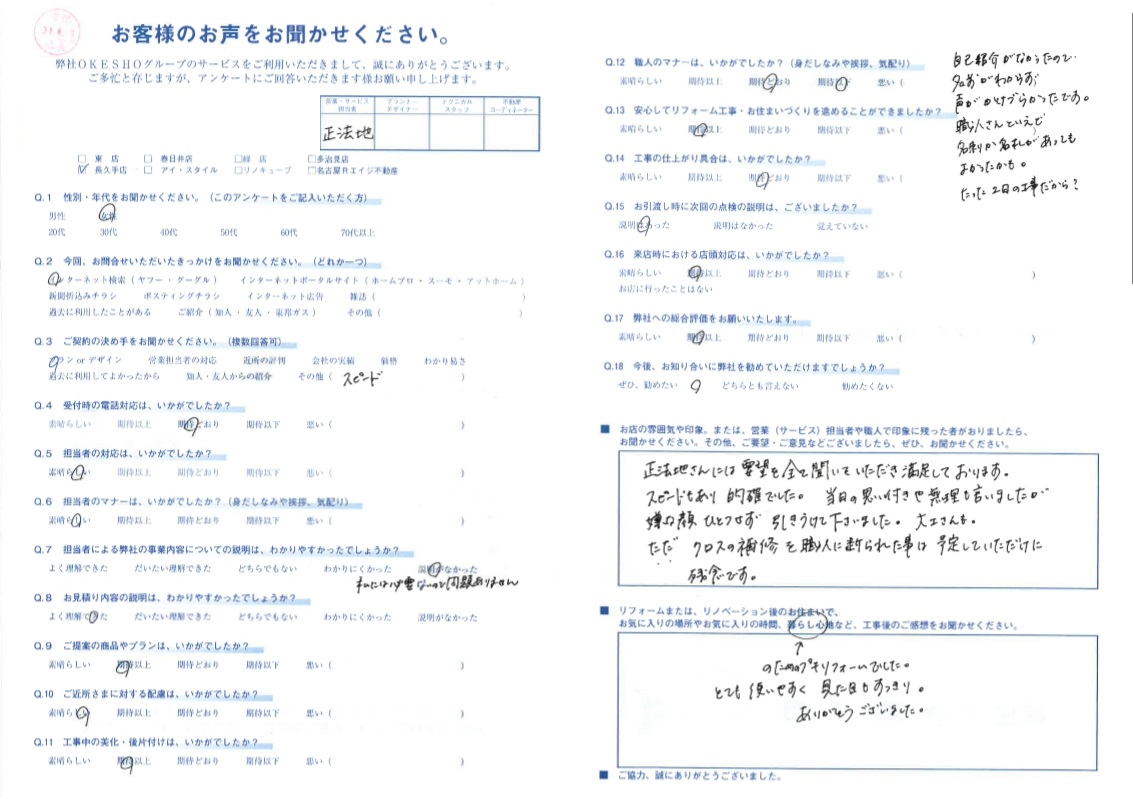 お客様のお声をお聞かせください。
弊社OKESHOグループのサービスをご利用いただきまして、誠にありがとうございます。
ご多忙と存じますが、アンケートにご回答いただきます様お願い申し上げます。
営業・サービス担当者 プランナーデザイナー テクニカルスタッフ 不動産コーディネーター
正法地
□ 東 店 □ 春日井店 □緑 店 □多治見店
☑ 長久手店 □ アイ・スタイル □リノキューブ □名古屋Rエイジ不動産
Q.1 性別・年代をお聞かせください。(このアンケートをご記入いただく方)
男性 女性
20代 30代 40代 50代 60代 70代以上
Q.2 今回、お問合せいただいたきっかけをお聞かせください。(どれか一つ)
インターネット検索(ヤフー・グーグル) インターネットポータルサイト(ホームプロ・スーモ・アットホーム)
新聞折込みチラシ ポスティングチラシ インターネット広告 雑誌( )
過去に利用したことがある ご紹介(知人・友人・東邦ガス) その他( )
Q.3 ご契約の決め手をお聞かせください。(複数回答可)
プラン or デザイン 営業担当者の対応 近所の評判 会社の実績 価格 わかり易さ
過去に利用してよかったから 知人・友人からの紹介 その他( スピード
Q.4 受付時の電話対応は、いかがでしたか?
素晴らしい 期待以上 期待どおり 期待以下 悪い( )
Q.5 担当者の対応は、いかがでしたか?
素晴らしい 期待以上 期待どおり 期待以下 悪い( )
Q.6 担当者のマナーは、いかがでしたか?(身だしなみや挨拶、気配り)
素晴らしい 期待以上 期待どおり 期待以下 悪い( )
Q.7 担当者による弊社の事業内容についての説明は、わかりやすかったでしょうか?
よく理解できた だいたい理解できた どちらでもない わかりにくかった 説明がなかった
私には必要ないので問題ありません
Q.8 お見積り内容の説明は、わかりやすかったでしょうか?
よく理解できた だいたい理解できた どちらでもない わかりにくかった 説明がなかった
Q.9 ご提案の商品やプランは、いかがでしたか?
素晴らしい 期待以上 期待どおり 期待以下 悪い( )
Q.10 ご近所さまに対する配慮は、いかがでしたか?
素晴らしい 期待以上 期待どおり 期待以下 悪い( )
Q.11 工事中の美化・後片付けは、いかがでしたか?
素晴らしい 期待以上 期待どおり 期待以下 悪い( )
Q.12 職人のマナーは、いかがでしたか?(身だしなみや挨拶、気配り)
素晴らしい 期待以上 期待どおり 期待以下 悪い(
自己紹介がなかったので
名前がわからず
声がかけづらかったです。
職人さんといえど
名乗りか名札があっても
よかったかも。
たった2日の工事だから?
Q.13 安心してリフォーム工事・お住まいづくりを進めることができましたか?
素晴らしい 期待以上 期待どおり 期待以下 悪い(
Q.14 工事の仕上がり具合は、いかがでしたか?
素晴らしい 期待以上 期待どおり 期待以下 悪い(
Q.15 お引渡し時に次回の点検の説明は、ございましたか?
説明はあった 説明はなかった 覚えていない
Q.16 来店時における店頭対応は、いかがでしたか?
素晴らしい 期待以上 期待どおり 期待以下 悪い( )
お店に行ったことはない
Q.17 弊社への総合評価をお願いいたします。
素晴らしい 期待以上 期待どおり 期待以下 悪い( )
Q.18 今後、お知り合いに弊社を勧めていただけますでしょうか?
ぜひ、勧めたい どちらとも言えない 勧めたくない
■ お店の雰囲気や印象。または、営業(サービス)担当者や職人で印象に残った者がおりましたら、
お聞かせください。その他、ご要望・ご意見などございましたら、ぜひ、お聞かせください。
正法地さんには要望を全て聞いていただき満足しております。
スピードもあり 的確でした。 当日の思い付きや無理も言いましたが
嫌な顔ひとつせず 引きうけて下さいました。 大工さんも。
ただ クロスの補修を職人に断られた事は 予定していただけに
残念です。
■ リフォームまたは、リノベーション後のお住まいで、
お気に入りの場所やお気に入りの時間、暮らし心地など、工事後のご感想をお聞かせください。
↑
のためのプチリフォームでした。
とても使いやすく 見た目もすっきり。
ありがとうございました。
■ ご協力、誠にありがとうございました。